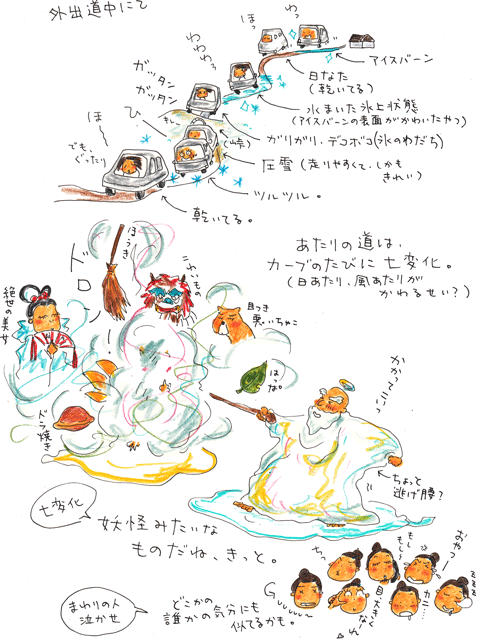 外出道中にて
わっ
ほっ
わわわっ
ガッタン
ガッタン
ひゃ
ほ〜
でも、
ぐったり
アイスバーン
日なた
(乾いてる)
水まいた氷上状態
(アイスバーンの表面がかわいたやつ)
ガリガリ・デコボコ(氷のわだち)
(峠)
圧雪 (走りやすくて、しかも
きれい)
ツルツル。
乾いてる。
あたりの道は、
カーブのたびに七変化。
(日あたり、風あたりが
かわるせい?)
ドロンー!
ほうき
こわいもの
絶世の美女
目つき
悪いちゃこ
はっぱ。
ドラ焼き
かかってこいっ
ちょっと
逃げ腰?
七変化
妖怪みたいな
ものだね、きっと。
まわりの人
泣かせ
どこかの
誰かの気分にも
似てるかも。
ちっ
もしもし〜
おやっ
Guuuu〜
目、大きく
カニ…
zzzz